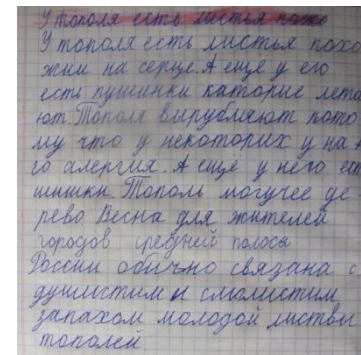 У тополя есть листья похо
У тополя есть листья похо
жии на серце. А ещё у его
есть пушинки каторие лета
ют. Тополя вырубляют пото
му что у некоторих у на
го алергия. А ещё у него ест
шишки. Тополь могучее де
рево Весна для жителей
городов средней полосы
России обично связана с
душистим и смолистим
запахом молодой листвы
тополей.